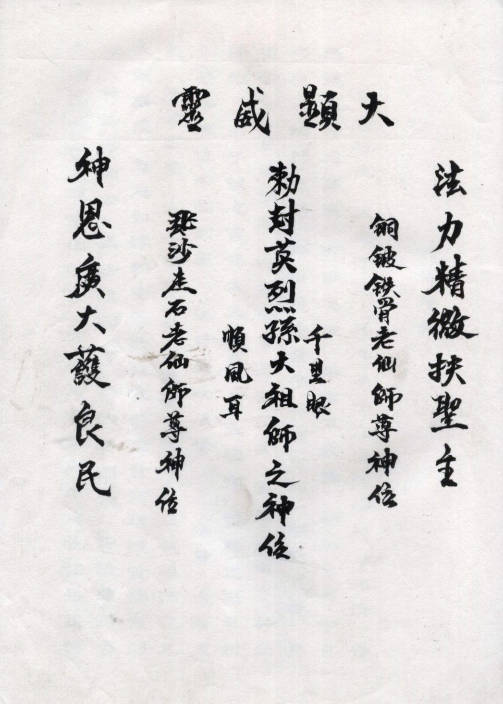 大顯威靈
法力精微扶聖主
銅皮鉄骨老仙師尊神位
千里眼
勅封英烈孫大祖師之神位
順風耳
飛沙走石老仙師尊神位
神恩廣大護良民